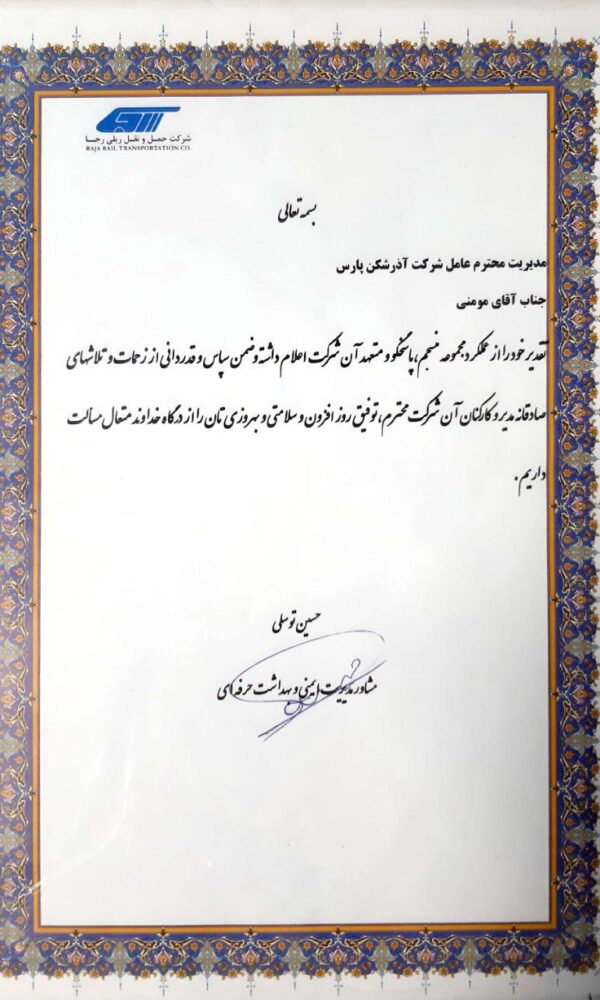 شرکت حمل و نقل ریلی رجا
RAJA RAIL TRANSPORTATION CO.
بسمه تعالی
مدیریت محترم عامل شرکت آذرشکن پارس
جناب آقای مومنی
تقدیر خود را از عملکرد مجموعه منسجم، پاسخگو و متعهد آن شرکت اعلام داشته و ضمن سپاس و قدردانی از زحمات و تلاشهای
صادقانه مدیر و کارکنان آن شرکت محترم، توفیق روز افزون و سلامتی و بهروزی تان را از درگاه خداوند متعال مسالت
داریم.
حسین توسلی
مشاور مدیریت ایمنی و بهداشت حرفه ای